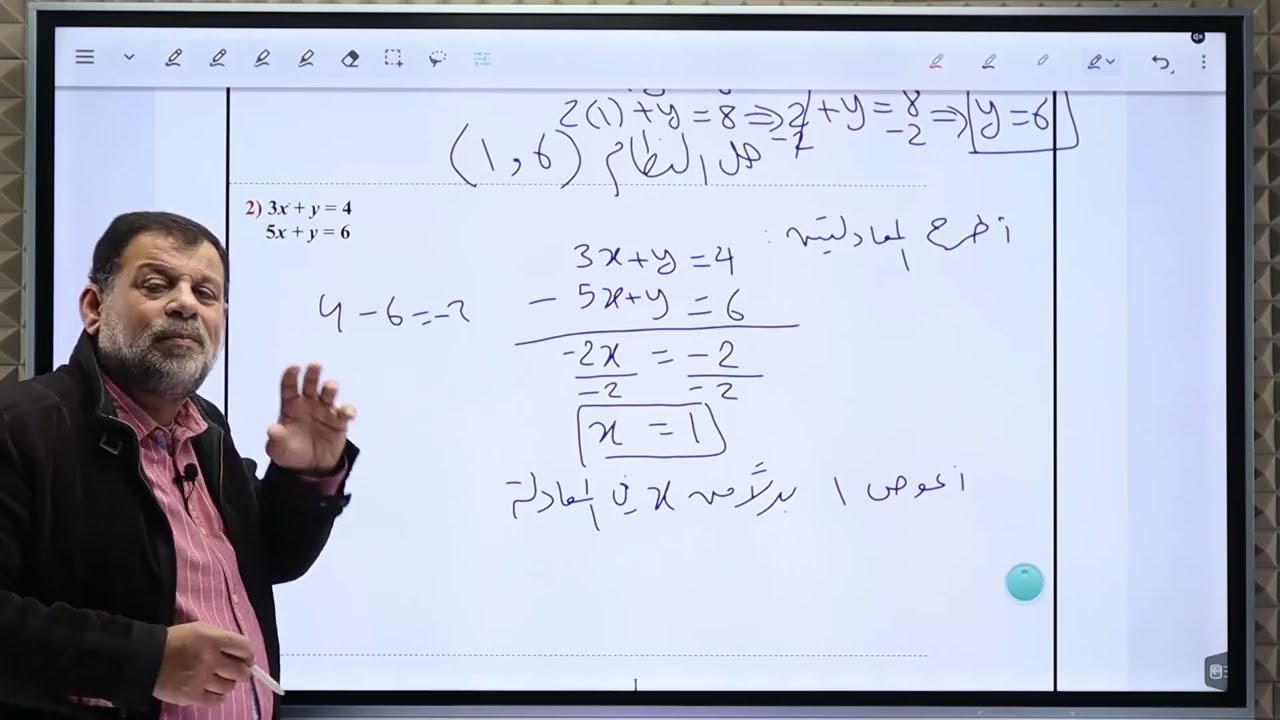 2(1) + y = 8 ⇒ 2 + y = 8 ⇒ y = 6
-2 -2
حل النظام (1, 6)
2) 3x + y = 4
5x + y = 6
أطرح المعادلتين :
3x + y = 4
- 5x + y = 6
4 - 6 = -2
-2x = -2
-2 -2
x = 1
أعوض 1 بدلاً من x في المعادلة
1